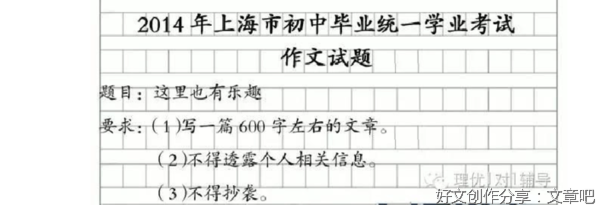 2014年上海市初中毕业统一学业考试
作文试题
题目：这里也有乐趣
要求：(1)写一篇600字左右的文章。
(2)不得透露个人相关信息。
(3)不得抄袭。
理优1对1辅导
好文创作分享：文章吧